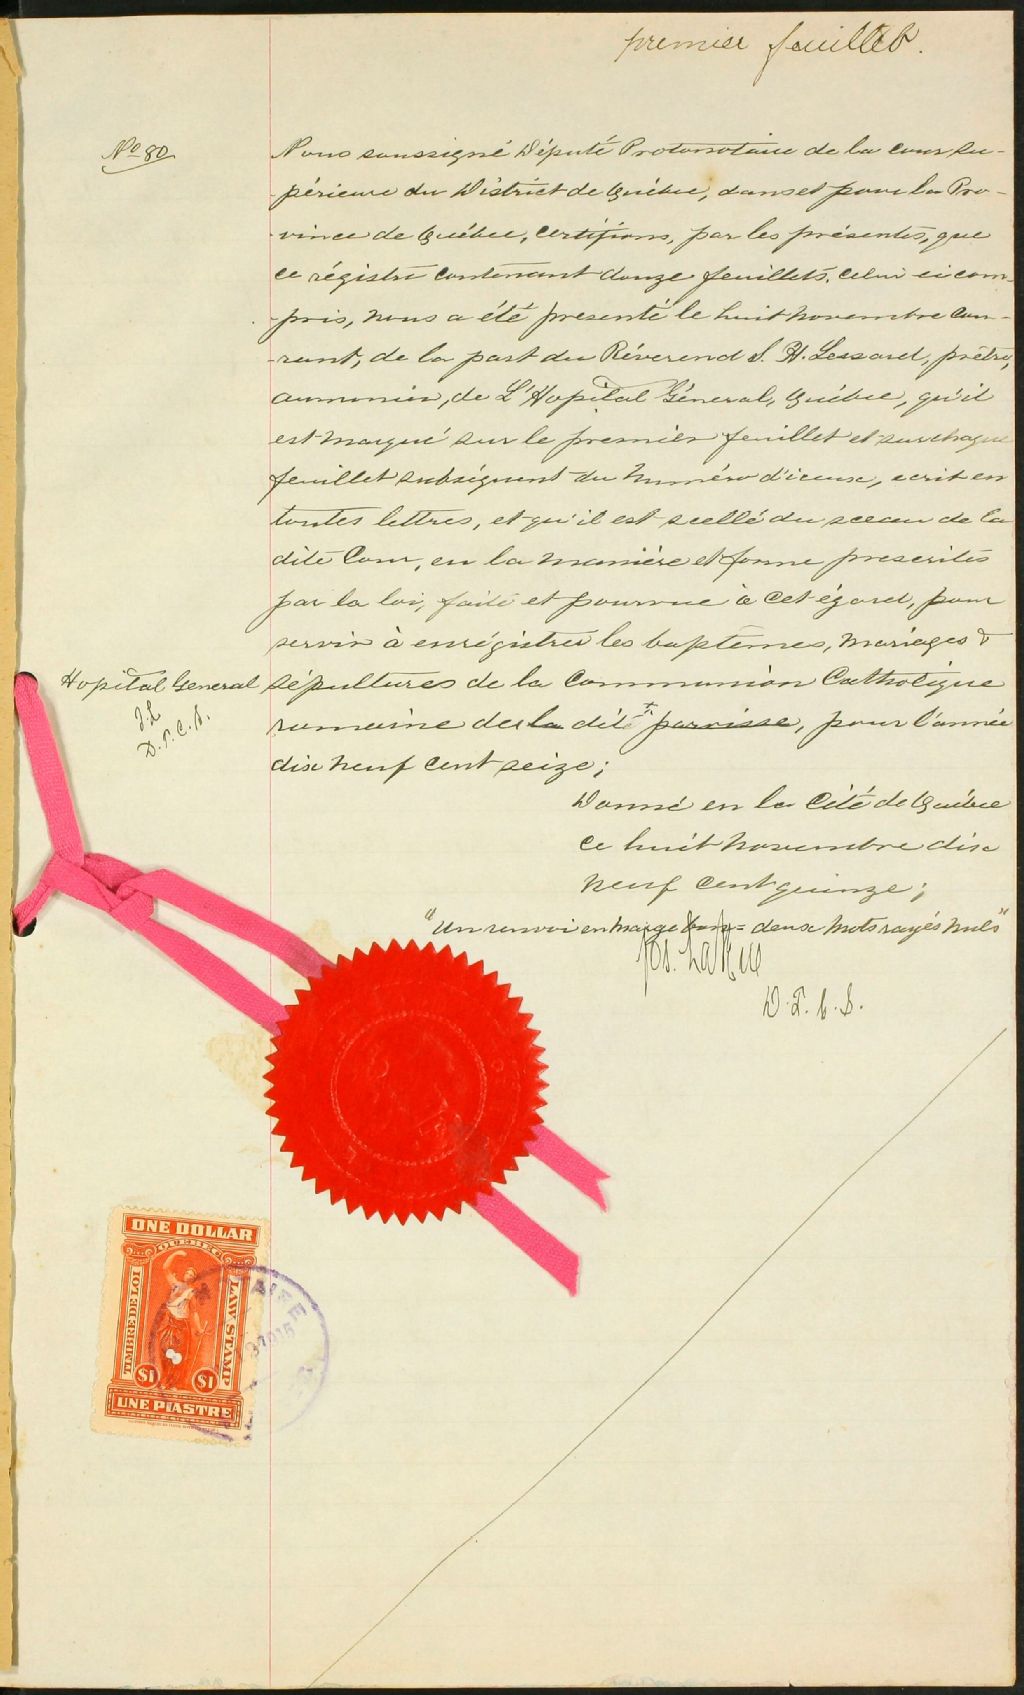 premier feuillet.
No 80
Nous soussigné Député Protonotaire de la cour Su-
-périeure du District de Québec, dans et pour la Pro-
-vince de Québec, certifions, par les présentes, que
ce régistre contenant douze feuillets, celui ci com-
-pris, nous a été présenté le huit novembre cou-
-rant, de la part du Réverend S. H. Lessard, prêtre,
aumonier, de L'Hopital Géneral, Québec, qu'il
est marqué sur le premier feuillet et sur chaque
feuillet subséquent du numéro d'iceux, ecrit en
toutes lettres, et qu'il est scellé du sceau de la
dite Cour, en la manière et forme prescrites
par la loi, faite et pourvue à cet égard, pour
servir à enrégistrer les baptemes, mariages &
Hopital General
sépultures de la Communion Catholique
J.L
D.P.C.S.
romaine de la dite paroisse, pour l'année
dix neuf cent seize;
Donné en la Cité de Québec
ce huit novembre dix
neuf cent quinze;
"Un renvoi en marge bon = deux mots rayés nuls"
Jos. LaRue
D. P. C. S.
ONE DOLLAR
QUEBEC
TIMBRE DE LOI
LAW STAMP
$1 $1
UNE PIASTRE